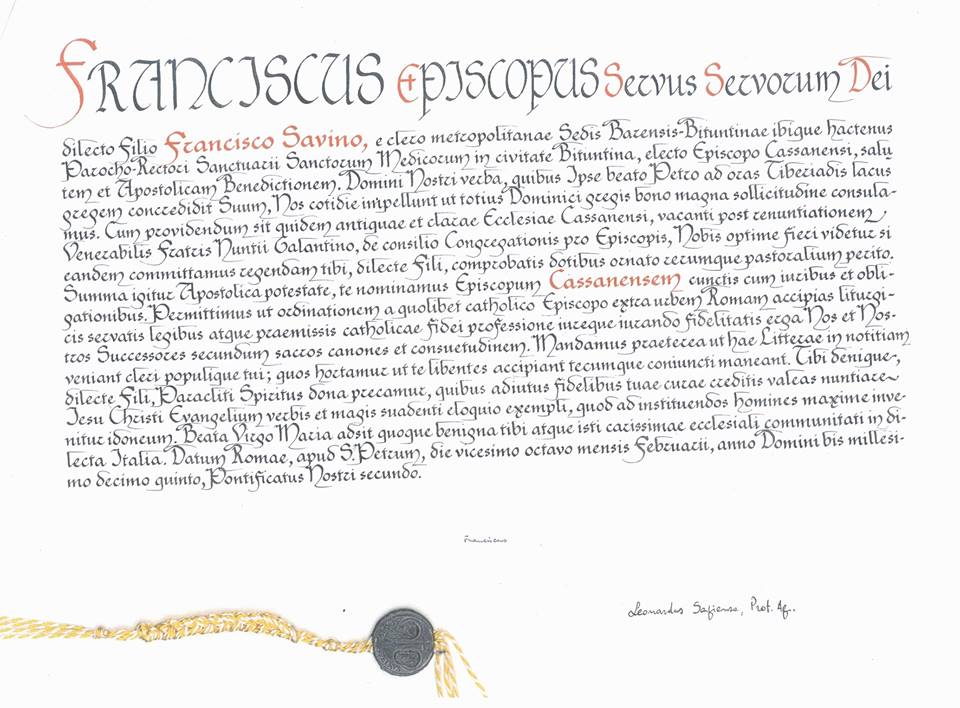 FRANCISCUS EPISCOPUS Servus Servorum Dei
dilecto Filio Francisco Savino, e clero metropolitanae Sedis Barensis-Bituntinae ibique hactenus
Parocho-Rectori Sanctuarii Sanctorum Medicorum in civitate Bituntina, electo Episcopo Cassanensi, salu
tem et Apostolicam Benedictionem. Domini Nostri verba, quibus Ipse beato Petro ad oras Tiberiadis lacus
gregem concredidit Suum, Nos cotidie impellunt ut totius Dominici gregis bono magna sollicitudine consula-
mus. Cum providendum sit quidem antiquae et clarae Ecclesiae Cassanensi, vacanti post renuntiationem
Venerabilis Fratris Nuntii Galantino, de consilio Congregationis pro Episcopis, Nobis optime fieri videtur si
eandem committamus regendam tibi, dilecte Fili, comprobatis dotibus ornato rerumque pastoralium perito.
Summa igitur Apostolica potestate, te nominamus Episcopum Cassanensem cunctis cum iuribus et obli-
gationibus. Permittimus ut ordinationem a quolibet catholico Episcopo extra urbem Romam accipias liturgi-
cis servatis legibus atque praemissis catholicae fidei professione iureque iurando fidelitatis erga Nos et Nos-
tros Successores secundum sacros canones et consuetudinem. Mandamus praeterea ut hae Litterae in notitiam
veniant cleri populique tui; quos hortamur ut te libentes accipiant tecumque coniuncti maneant. Tibi denique,
dilecte Fili, Paracliti Spiritus dona precamur, quibus adiutus fidelibus tuae curae creditis valeas nuntiare
Jesu Christi Evangelium verbis et magis suadenti eloquio exempli, quod ad instituendos homines maxime inve-
nitur idoneum. Beata Virgo Maria adsit quoque benigna tibi atque isti carissimae ecclesiali communitati in di-
lecta Italia. Datum Romae, apud S. Petrum, die vicesimo octavo mensis Februarii, anno Domini bis millesi-
mo decimo quinto, Pontificatus Nostri secundo.
Franciscus
Leonardus Sapienza, Prot. Ap.